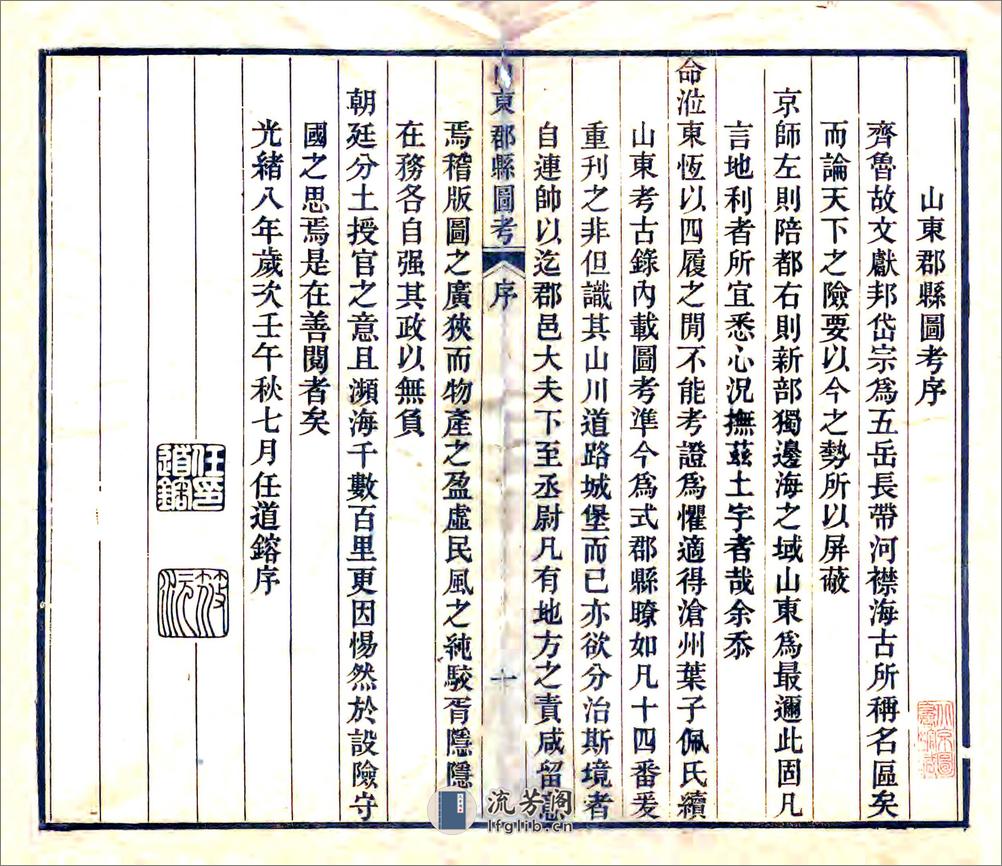 山東郡縣圖考序
齊魯故文獻邦岱宗為五岳長帶河襟海古所稱名區矣
而論天下之險要以今之勢所以屏蔽
京師左則陪都右則新部獨邊海之域山東為最邇此固凡
言地利者所宜悉心況撫茲土宇者哉余忝
命涖東恆以四履之閒不能考證為懼適得滄州葉子佩氏續
山東考古錄內載圖考準今為式郡縣瞭如凡十四番爰
重刊之非但識其山川道路城堡而已亦欲分治斯境者
自連帥以迄郡邑大夫下至丞尉凡有地方之責咸留意
山東郡縣圖考 序 十
焉稽版圖之廣狹而物產之盈虛民風之純駮胥隱隱
在務各自强其政以無負
朝廷分土授官之意且瀕海千數百里更因惕然於設險守
國之思焉是在善閱者矣
光緒八年歲次壬午秋七月任道鎔序
任道鎔印
筱沅
流芳阁
lfglib.cn